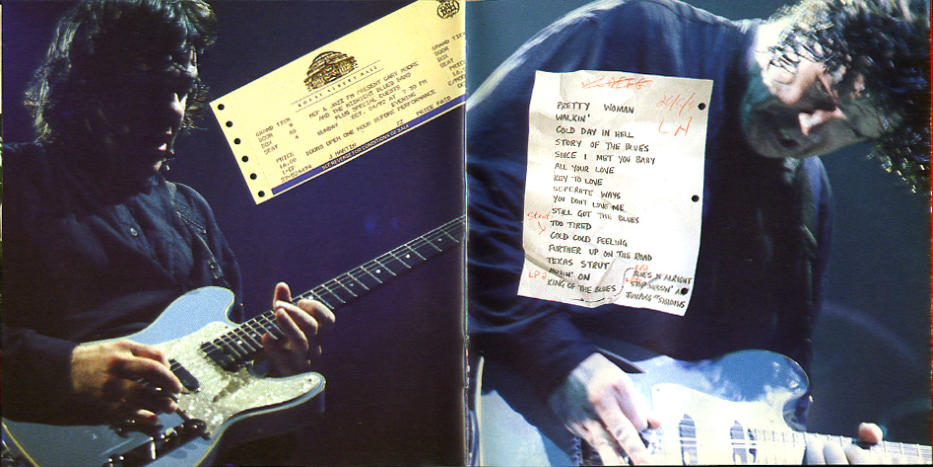 ROYAL ALBERT HALL
MCP & JAZZ FM PRESENT GARY MOORE
AND THE MIDNIGHT BLUES BAND
PLUS SPECIAL GUESTS
SUNDAY OCT. 04/92 AT 7.30 PM
EVENING
DOORS OPEN ONE HOUR BEFORE PERFORMANCE
GRAND TIER
DOOR
BOX
SEAT
PRICE
16.00
J MARTIN
PRICE PAID
SEE REVERSE FOR CONDITIONS OF SALE
GRAND TIER
DOOR
BOX
SEAT
PRICE
PRETTY WOMAN
WALKIN'
COLD DAY IN HELL
STORY OF THE BLUES
SINCE I MET YOU BABY
ALL YOUR LOVE
KEY TO LOVE
SEPERATE WAYS
YOU DON'T LOVE ME
STILL GOT THE BLUES
TOO TIRED
COLD COLD FEELING
FURTHER UP ON THE ROAD
TEXAS STRUT
MOVIN' ON
KING OF THE BLUES
LP2
JUMPING AT SHADOWS